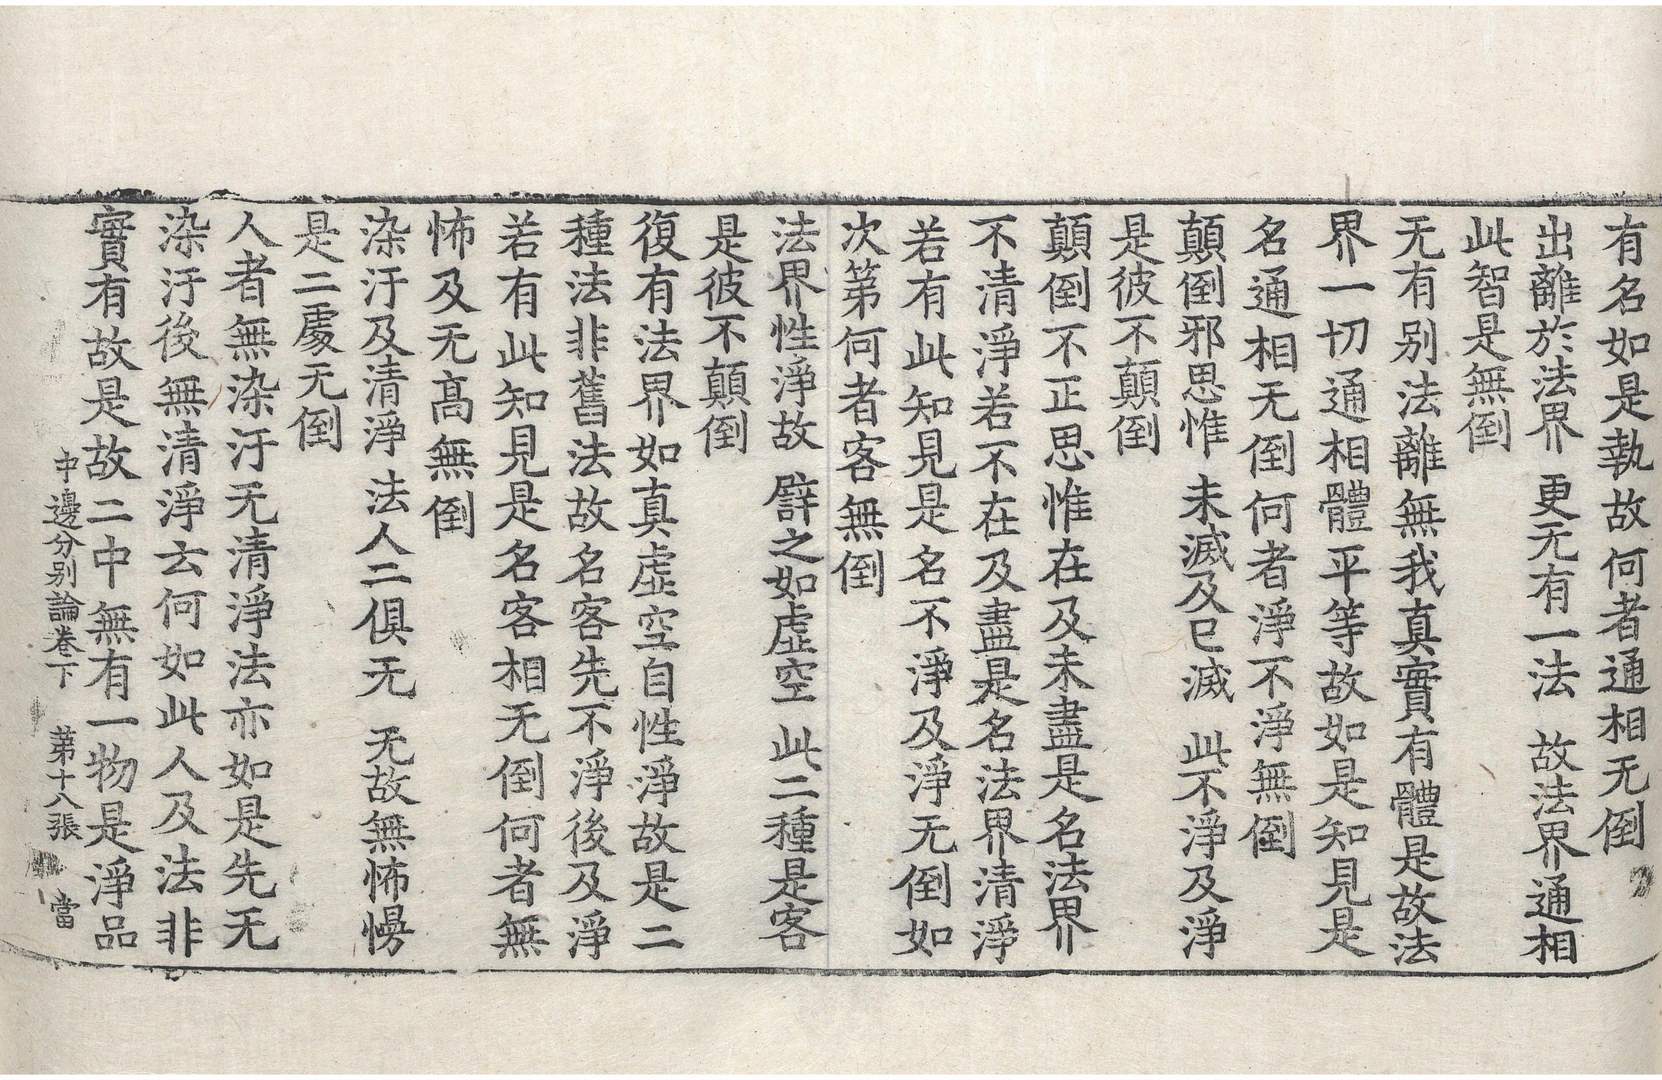 有名如是執故何者通相无倒
出離於法界 更无有一法 故法界通相
此智是無倒
无有别法離無我真實有體是故法
界一切通相體平等故如是知見是
名通相无倒何者淨不淨無倒
顛倒邪思惟 未滅及已滅 此不淨及淨
是彼不顛倒
顛倒不正思惟在及未盡是名法界
不清淨若不在及盡是名法界清淨
若有此知見是名不淨及淨无倒如
次第何者客無倒
法界性淨故 譬之如虛空 此二種是客
是彼不顛倒
復有法界如真虛空自性淨故是二
種法非舊法故名客先不淨後及淨
若有此知見是名客相无倒何者無
怖及无高無倒
染汙及清淨 法人二俱无 无故無怖慢
是二處无倒
人者無染汙无清淨法亦如是先无
染汙後無清淨去何如此人及法非
實有故是故二中無有一物是淨品
中邊分别論卷下 第十八張 當